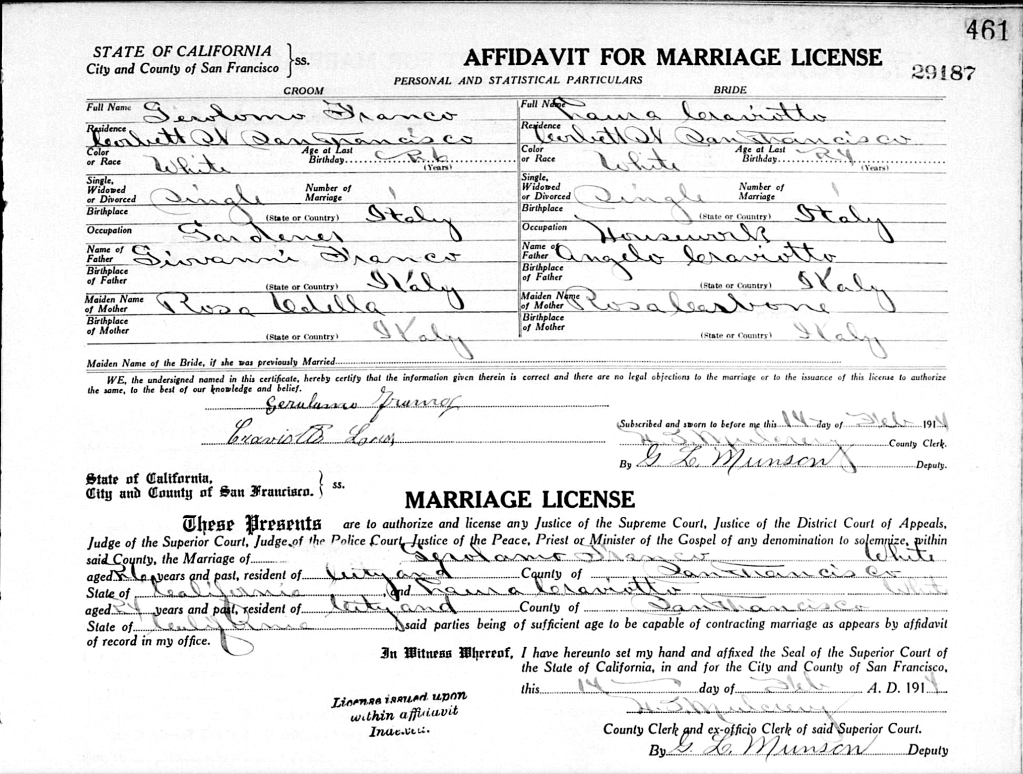 461
STATE OF CALIFORNIA
City and County of San Francisco } ss.
AFFIDAVIT FOR MARRIAGE LICENSE
29187
PERSONAL AND STATISTICAL PARTICULARS
GROOM
BRIDE
Full Name Gerolomo Franco
Full Name Laura Craviotto
Residence Corbett St San Francisco
Residence Corbett St San Francisco
Color or Race White Age at Last Birthday (Years)
Color or Race White Age at Last Birthday 24 (Years)
Single, Widowed or Divorced Single Number of Marriage 1
Single, Widowed or Divorced Single Number of Marriage 1
Birthplace (State or Country) Italy
Birthplace (State or Country) Italy
Occupation Gardener
Occupation Housework
Name of Father Giovanni Franco
Name of Father Angelo Craviotto
Birthplace of Father (State or Country) Italy
Birthplace of Father (State or Country) Italy
Maiden Name of Mother Rosa
Maiden Name of Mother Rosa Carbone
Birthplace of Mother (State or Country) Italy
Birthplace of Mother (State or Country) Italy
Maiden Name of the Bride, if she was previously Married
WE, the undersigned named in this certificate, hereby certify that the information given therein is correct and there are no legal objections to the marriage or to the issuance of this license to authorize
the same, to the best of our knowledge and belief.
Gerolamo
Craviotto
Subscribed and sworn to before me this 14 day of Feb 1914
H I Mulcrevy County Clerk.
By G L Munson Deputy.
State of California,
City and County of San Francisco. } ss.
MARRIAGE LICENSE
These Presents are to authorize and license any Justice of the Supreme Court, Justice of the District Court of Appeals,
Judge of the Superior Court, Judge of the Police Court, Justice of the Peace, Priest or Minister of the Gospel of any denomination to solemnize, within
said County, the Marriage of Gerolamo Franco White
aged years and past, resident of City and County of San Francisco
State of California and Laura Craviotto White
aged 24 years and past, resident of City and County of San Francisco
State of California said parties being of sufficient age to be capable of contracting marriage as appears by affidavit
of record in my office.
In Witness Whereof, I have hereunto set my hand and affixed the Seal of the Superior Court of
the State of California, in and for the City and County of San Francisco,
this 14 day of Feb A. D. 1914
License issued upon
within affidavit
H I Mulcrevy
County Clerk and ex-officio Clerk of said Superior Court.
By G L Munson Deputy